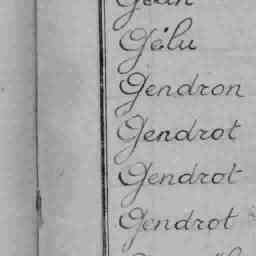 Gélu
Gendron
Gendrot
Gendrot
Gendrot